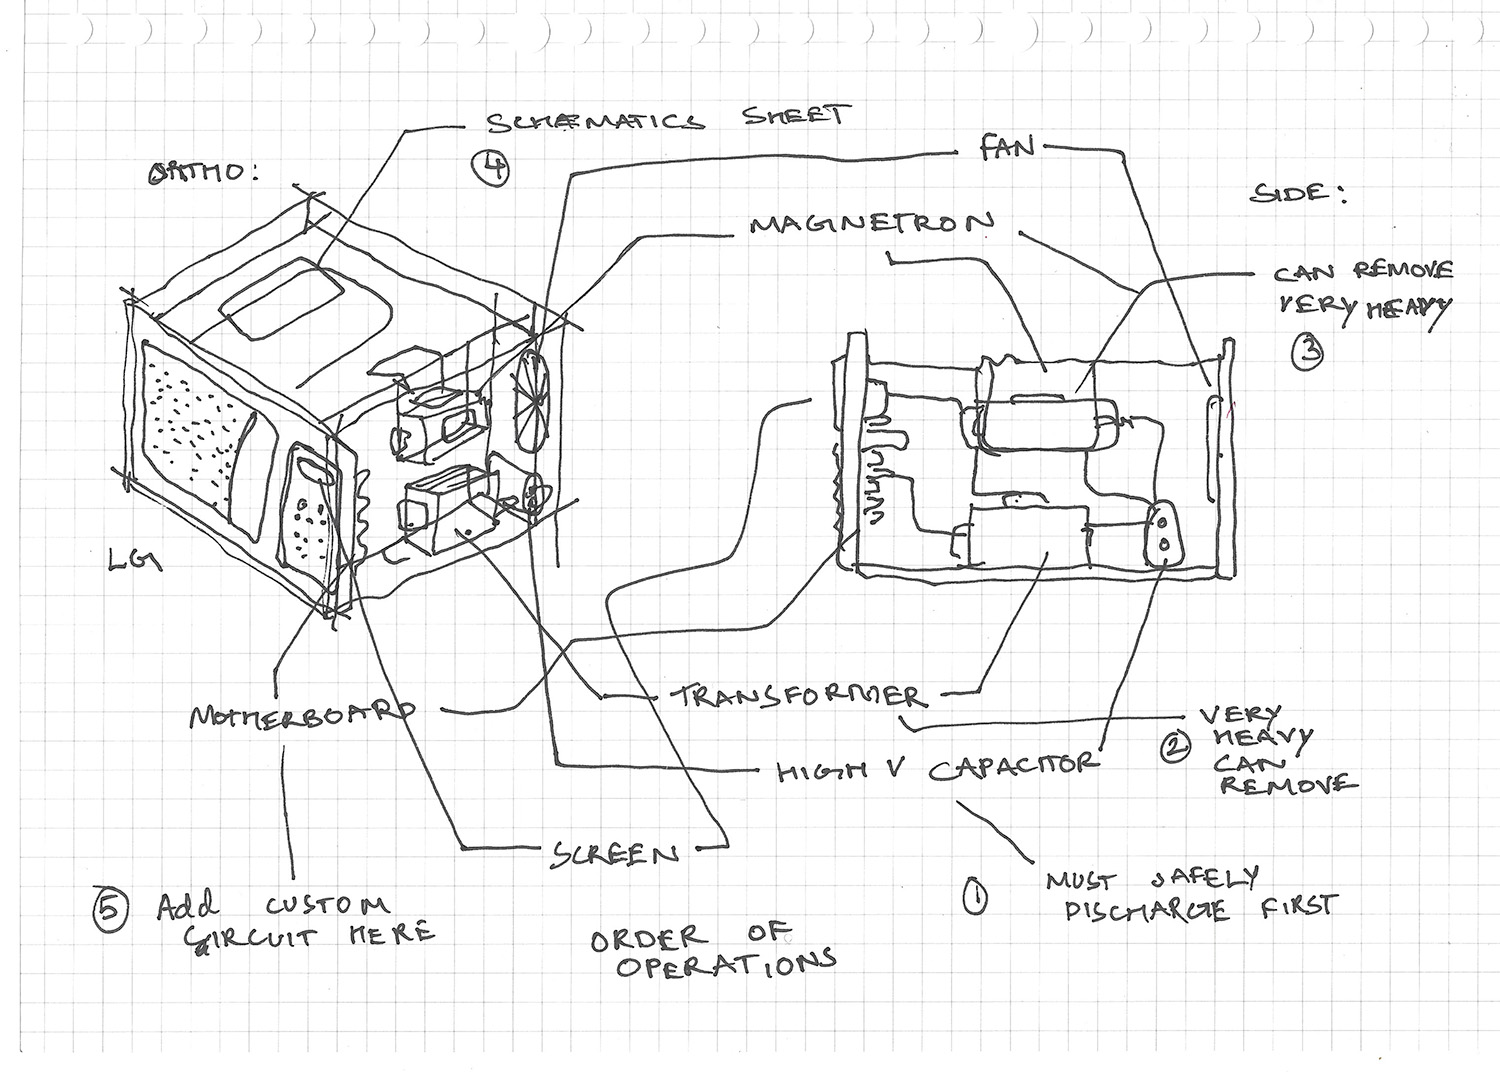 SCHEMATICS SHEET
④
ORTHO:
FAN
SIDE:
MAGNETRON
CAN REMOVE
VERY HEAVY
③
LG
MOTHERBOARD
TRANSFORMER
VERY
HEAVY
CAN
REMOVE
②
HIGH V CAPACITOR
SCREEN
① MUST SAFELY
DISCHARGE FIRST
⑤ Add CUSTOM
CIRCUIT HERE
ORDER OF
OPERATIONS